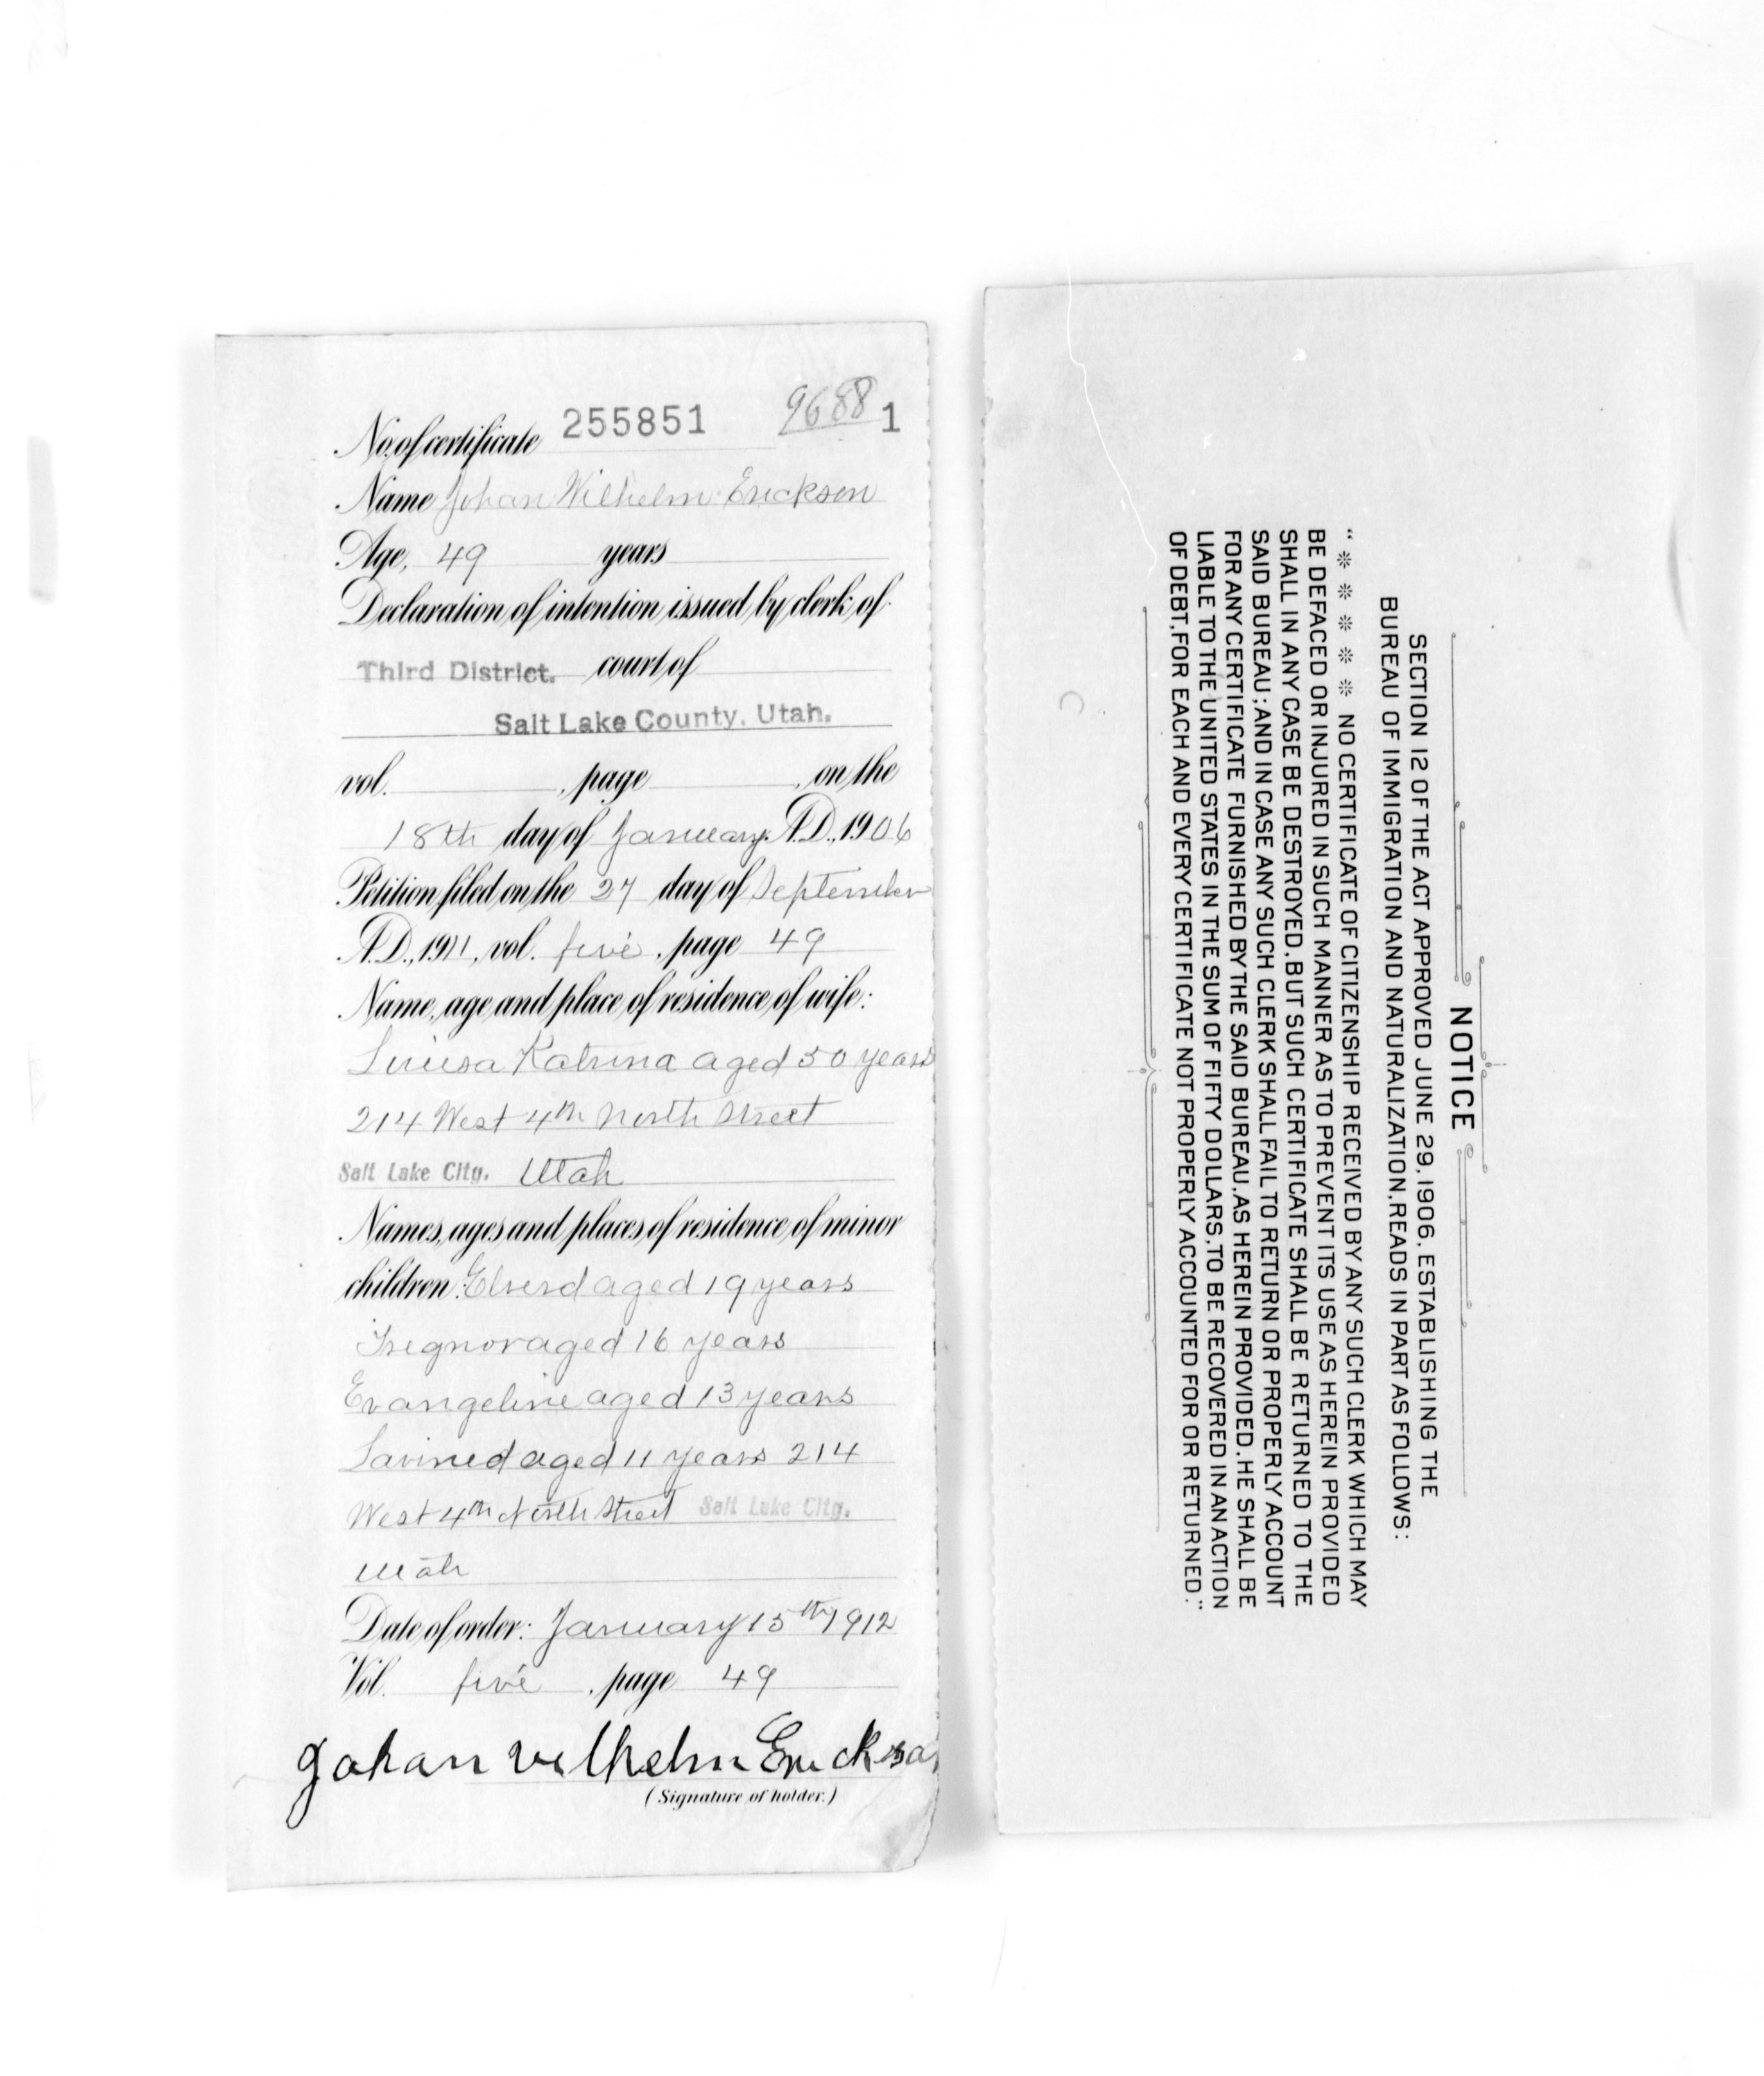 No. of certificate 255851 9688 1
Name Johan Wilhelm Erickson
Age, 49 years
Declaration of intention issued by clerk of
Third District. court of
Salt Lake County, Utah.
vol. , page , on the
18th day of January A.D., 1906
Petition filed on the 27 day of September
A.D., 1911, vol. five, page 49
Name, age and place of residence of wife:
Katrina aged 50 years
214 West 4th North Street
Salt Lake City. Utah
Names, ages and places of residence of minor
children: aged 19 years
aged 16 years
Evangeline aged 13 years
aged 11 years 214
West 4th North Street Salt Lake City.
Utah
Date of order: January 15th 1912
Vol. five, page 49
Johan Vilhelm Erickson
(Signature of holder.)
NOTICE
SECTION 12 OF THE ACT APPROVED JUNE 29, 1906, ESTABLISHING THE
BUREAU OF IMMIGRATION AND NATURALIZATION, READS IN PART AS FOLLOWS:
"* * * * * NO CERTIFICATE OF CITIZENSHIP RECEIVED BY ANY SUCH CLERK WHICH MAY
BE DEFACED OR INJURED IN SUCH MANNER AS TO PREVENT ITS USE AS HEREIN PROVIDED
SHALL IN ANY CASE BE DESTROYED, BUT SUCH CERTIFICATE SHALL BE RETURNED TO THE
SAID BUREAU; AND IN CASE ANY SUCH CLERK SHALL FAIL TO RETURN OR PROPERLY ACCOUNT
FOR ANY CERTIFICATE FURNISHED BY THE SAID BUREAU, AS HEREIN PROVIDED, HE SHALL BE
LIABLE TO THE UNITED STATES IN THE SUM OF FIFTY DOLLARS, TO BE RECOVERED IN AN ACTION
OF DEBT, FOR EACH AND EVERY CERTIFICATE NOT PROPERLY ACCOUNTED FOR OR RETURNED."